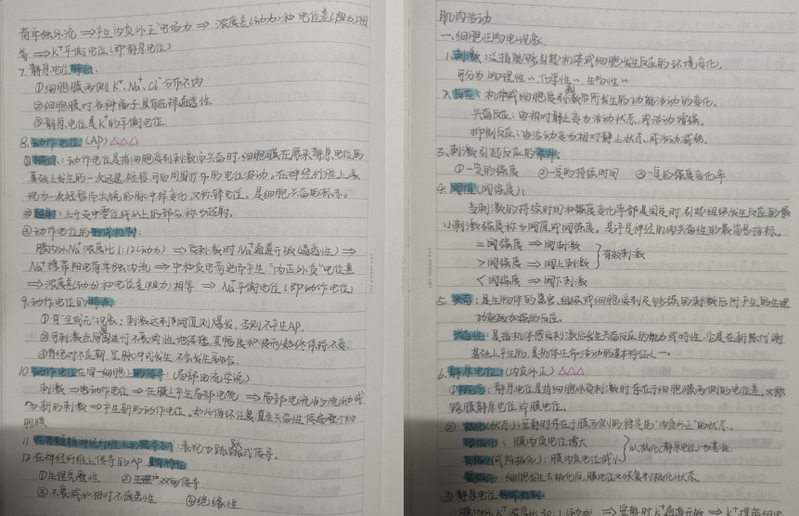 荷单独外流 ⇒ 产生"内负外正"电场力 ⇒ 浓度差(动力)和电位差(阻力)相
等 ⇒ K⁺平衡电位(即静息电位)
7. 静息电位特点:
①细胞膜两侧K⁺、Na⁺、Cl⁻分布不均
②细胞膜对各种离子具有选择通透性
③静息电位是K⁺的平衡电位
8. 动作电位(AP) △△△
①概念:动作电位是指细胞受到刺激而兴奋时,细胞膜在原来静息电位的
基础上发生的一次迅速、短暂、可向周围扩布的电位波动。在神经纤维上表
现为一次短暂而尖锐的脉冲样变化,又称锋电位。是细胞兴奋的标志。
②超射:上升支中零位线以上的部分称为超射。
③动作电位的形成机制:
膜内外Na⁺浓度比1:12(动力) ⇒ 受刺激时Na⁺通道开放(通透性) ⇒
Na⁺携带阳电荷单独内流 ⇒ 中和负电荷进而产生"内正外负"电位差
⇒ 浓度差(动力)和电位差(阻力)相等 ⇒ Na⁺平衡电位(即动作电位)
9. 动作电位的特点:
①有"全或无"现象:刺激达到阈值则爆发,否则不产生AP.
②可刺激点向周围进行不衰减性地传播,其幅度和波形始终保持不变.
③有绝对不应期,呈脉冲式发生,不会发生融合。
10. 动作电位在同一细胞上的传导:(局部电流学说)
刺激 ⇒ 动作电位 ⇒ 在膜上产生局部电流 ⇒ 局部电流的流动成
为新的刺激 ⇒ 产生新的动作电位。如此循环往复直至兴奋性传遍整个细
胞膜
11. 表现为跳跃式传导。
12. 在神经纤维上传导的AP
①生理完整性 ②双向传导
③不衰减和相对不疲劳性 ④绝缘性
肌肉活动
一、细胞生物电现象
1. 刺激:泛指能够引起机体或细胞发生反应的环境变化。
可分为物理性~、化学性~、生物性~
2. 反应:机体或细胞受刺激后所发生的功能活动的变化。
兴奋反应:由相对静止变为活动状态,或活动增强。
抑制反应:由活动变为相对静止状态,或活动减弱。
3. 刺激引起反应的条件:
①一定的强度 ②一定的持续时间 ③一定的强度变化率
4. 阈值(阈强度):
当刺激的持续时间和强度变化率都是固定时,引起组织发生反应的最
小刺激强度称为阈值或阈强度。是评定神经肌肉兴奋性的最简易指标。
=阈强度 ⇒ 阈刺激
>阈强度 ⇒ 阈上刺激 } 有效刺激
<阈强度 ⇒ 阈下刺激
5. 兴奋:是生物体的器官、组织或细胞受到足够强的刺激后所产生的生理
功能加强的反应。
兴奋性:是指机体感受刺激后发生兴奋反应的能力或特性。它是在新陈代谢
基础上产生的,是机体生命活动的基本特征之一。
6. 静息电位:(内负外正) △△△
①概念:静息电位是指细胞未受刺激时存在于细胞膜两侧的电位差,又称
跨膜静息电位或膜电位。
②极化(状态):安静时存在于膜两侧的稳定的"内负外正"的状态。
超极化:膜内负电位增大
去极化(或除极化):膜内负电位减小 } 以极化(静息电位)为基准。
复极化:细胞发生去极化后,膜电位又恢复到极化状态。
③静息电位形成机制: